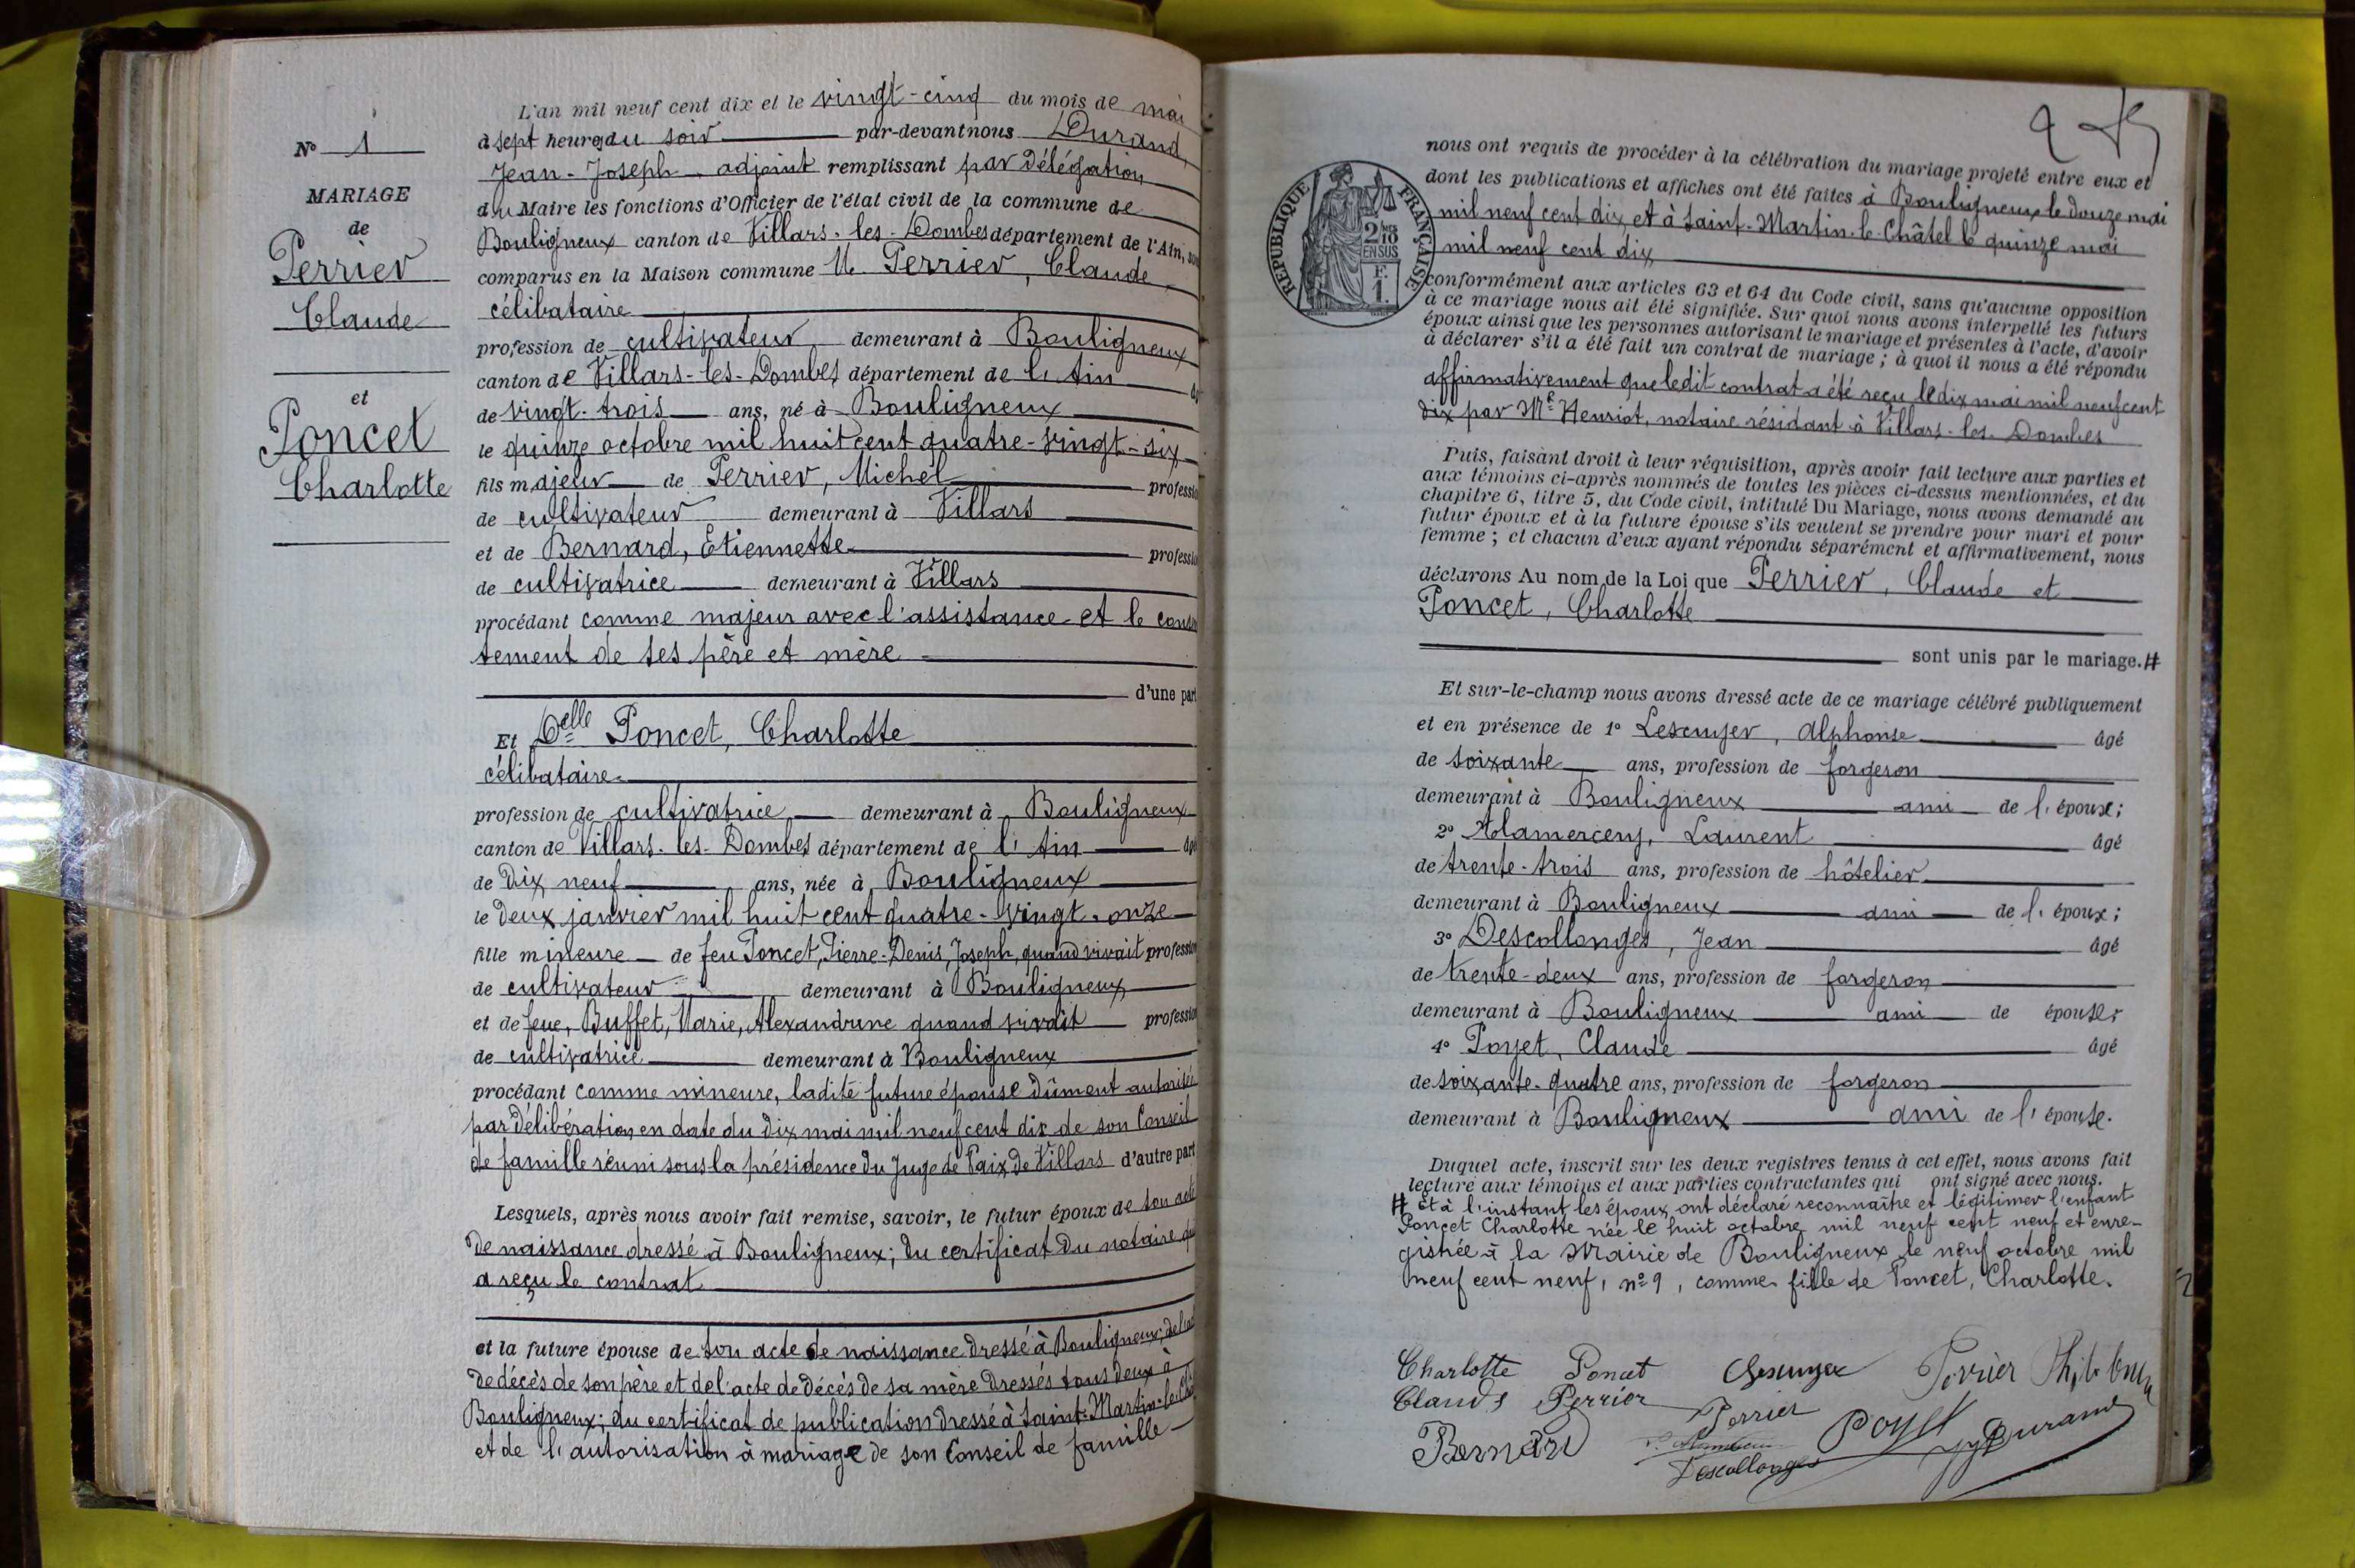 L'an mil neuf cent dix et le vingt-cinq du mois de mai
N° 1
à sept heures du soir par-devant nous Durand,
Jean-Joseph adjoint remplissant par délégation
MARIAGE
du Maire les fonctions d'Officier de l'état civil de la commune de
de
Bouligneux canton de Villars-les-Dombes département de l'Ain, son
Perrier
comparus en la Maison commune M. Perrier, Claude,
Claude
célibataire
profession de cultivateur demeurant à Bouligneux
canton de Villars-les-Dombes département de l'Ain âgé
et
de vingt-trois ans, né à Bouligneux
Poncet
le quinze octobre mil huit cent quatre-vingt-six
Charlotte
fils majeur de Perrier, Michel professio
de cultivateur demeurant à Villars
et de Bernard, Etiennette professio
de cultivatrice demeurant à Villars
procédant comme majeur avec l'assistance et le consen
tement de ses père et mère
d'une part
Et Delle Poncet, Charlotte
célibataire
profession de cultivatrice demeurant à Bouligneux
canton de Villars-les-Dombes département de l'Ain âgé
de dix neuf ans, née à Bouligneux
le deux janvier mil huit cent quatre-vingt-onze
fille mineure de feu Poncet, Pierre-Denis, Joseph, quand vivait profession
de cultivateur demeurant à Bouligneux
et de feue, Buffet, Marie, Alexandrine quand vivait profession
de cultivatrice demeurant à Bouligneux
procédant comme mineure, ladite future épouse dûment autorisée
par délibération en date du dix mai mil neuf cent dix de son Conseil
de famille réuni sous la présidence du Juge de Paix de Villars d'autre part
Lesquels, après nous avoir fait remise, savoir, le futur époux de son acte
de naissance dressé à Bouligneux; du certificat du notaire qui
a reçu le contrat
et la future épouse de son acte de naissance dressé à Bouligneux;
de décès de son père et de l'acte de décès de sa mère dressés tous deux à
Bouligneux; du certificat de publication dressé à Saint-Martin-le-Châ
et de l'autorisation à mariage de son Conseil de famille
nous ont requis de procéder à la célébration du mariage projeté entre eux et
dont les publications et affiches ont été faites à Bouligneux le douze mai
mil neuf cent dix et à Saint-Martin-le-Châtel le quinze mai
mil neuf cent dix
RÉPUBLIQUE FRANÇAISE
2/10
EN SUS
F.
1.
conformément aux articles 63 et 64 du Code civil, sans qu'aucune opposition
à ce mariage nous ait été signifiée. Sur quoi nous avons interpellé les futurs
époux ainsi que les personnes autorisant le mariage et présentes à l'acte, d'avoir
à déclarer s'il a été fait un contrat de mariage; à quoi il nous a été répondu
affirmativement que ledit contrat a été reçu le dix mai mil neuf cent
dix par Me Henriot, notaire résidant à Villars-les-Dombes
Puis, faisant droit à leur réquisition, après avoir fait lecture aux parties et
aux témoins ci-après nommés de toutes les pièces ci-dessus mentionnées, et du
chapitre 6, titre 5, du Code civil, intitulé Du Mariage, nous avons demandé au
futur époux et à la future épouse s'ils veulent se prendre pour mari et pour
femme; et chacun d'eux ayant répondu séparément et affirmativement, nous
déclarons Au nom de la Loi que Perrier, Claude et
Poncet, Charlotte
sont unis par le mariage.#
Et sur-le-champ nous avons dressé acte de ce mariage célébré publiquement
et en présence de 1° Lescuyer, Alphonse âgé
de soixante ans, profession de forgeron
demeurant à Bouligneux ami de l'époux;
2° Alamercery, Laurent âgé
de trente-trois ans, profession de hôtelier
demeurant à Bouligneux ami de l'époux;
3° Descollonges, Jean âgé
de trente-deux ans, profession de forgeron
demeurant à Bouligneux ami de épouse;
4° Poyet, Claude âgé
de soixante-quatre ans, profession de forgeron
demeurant à Bouligneux ami de l'épouse.
Duquel acte, inscrit sur les deux registres tenus à cet effet, nous avons fait
lecture aux témoins et aux parties contractantes qui ont signé avec nous.
# Et à l'instant les époux ont déclaré reconnaître et légitimer l'enfant
Poncet Charlotte née le huit octobre mil neuf cent neuf et enre-
gistrée à la Mairie de Bouligneux le neuf octobre mil
neuf cent neuf, n° 9, comme fille de Poncet, Charlotte.
Charlotte Poncet Lescuyer Perrier
Claude Perrier Perrier
Bernard Poyet Durand
Descollonges